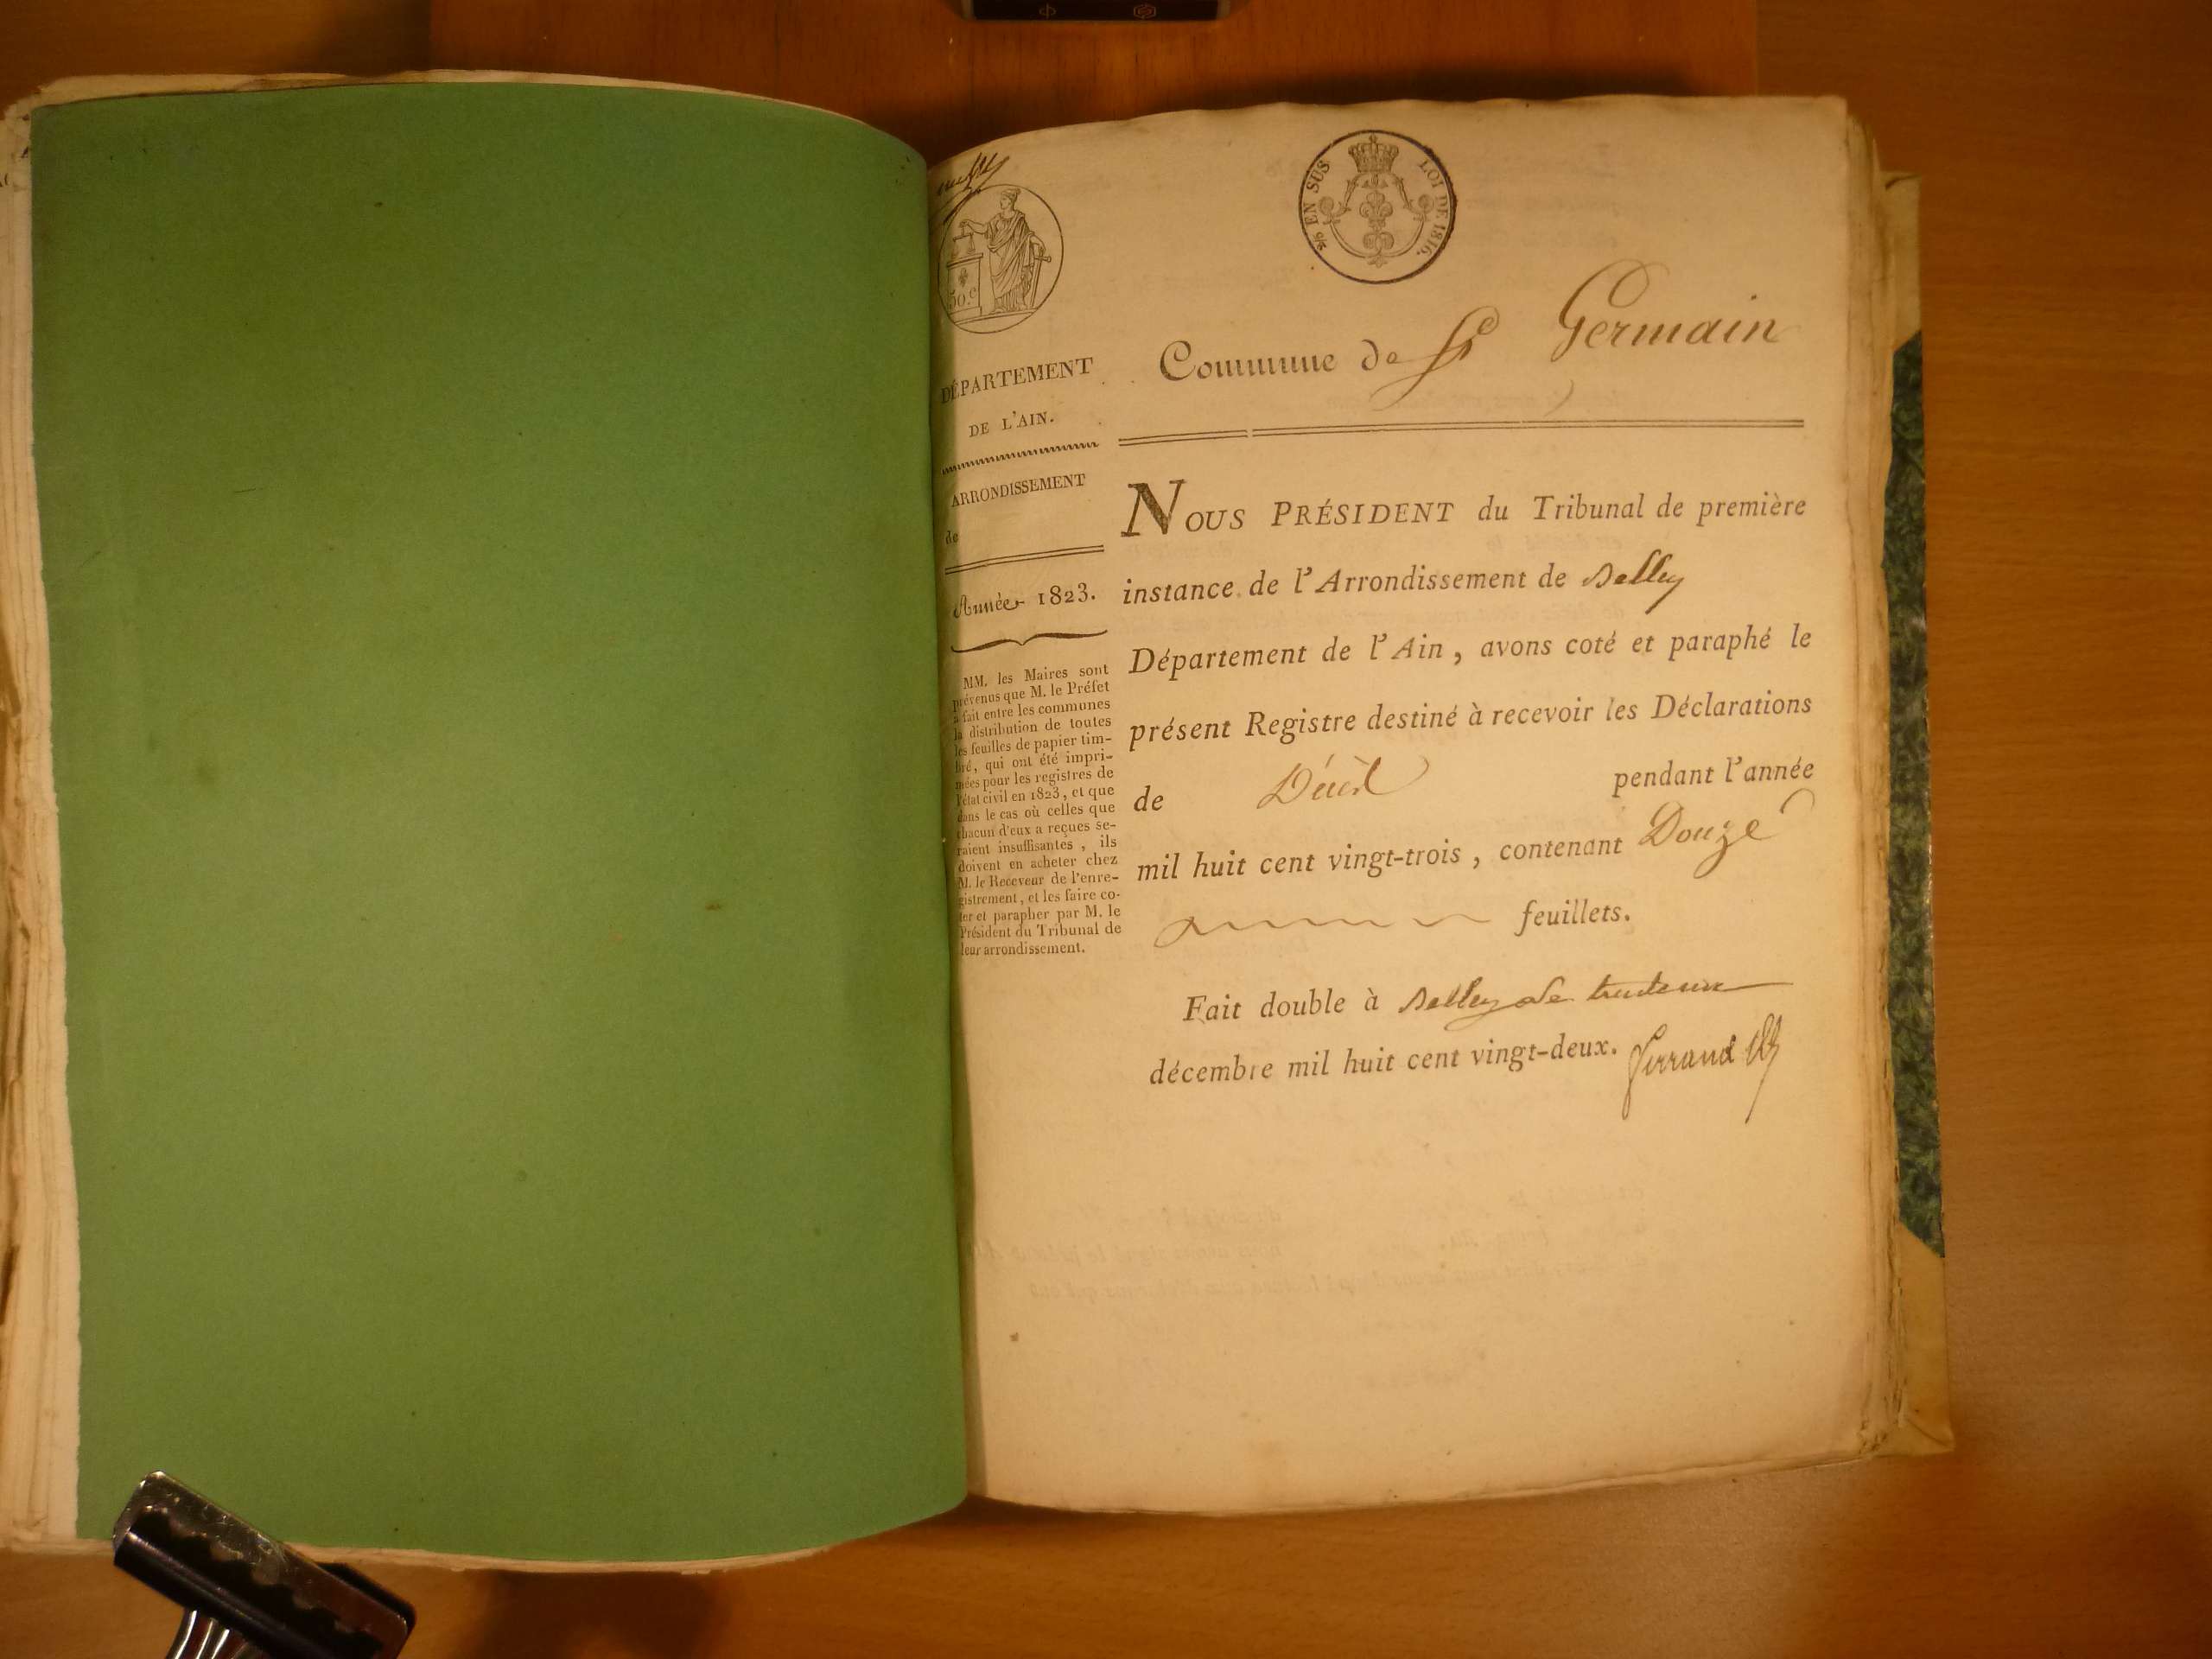 2/6 EN SUS LOI DE 1816.
50.c
Commune de St Germain
DÉPARTEMENT
DE L'AIN.
ARRONDISSEMENT
de
Année 1823.
MM. les Maires sont
prévenus que M. le Préfet
a fait entre les communes
la distribution de toutes
les feuilles de papier tim-
bré, qui ont été impri-
mées pour les registres de
l'état civil en 1823, et que
dans le cas où celles que
chacun d'eux a reçues se-
raient insuffisantes, ils
doivent en acheter chez
M. le Receveur de l'enre-
gistrement, et les faire co-
ter et parapher par M. le
Président du Tribunal de
leur arrondissement.
NOUS PRÉSIDENT du Tribunal de première
instance de l'Arrondissement de Belley
Département de l'Ain, avons coté et paraphé le
présent Registre destiné à recevoir les Déclarations
de Décès pendant l'année
mil huit cent vingt-trois, contenant Douze
feuillets.
Fait double à Belley le
décembre mil huit cent vingt-deux.